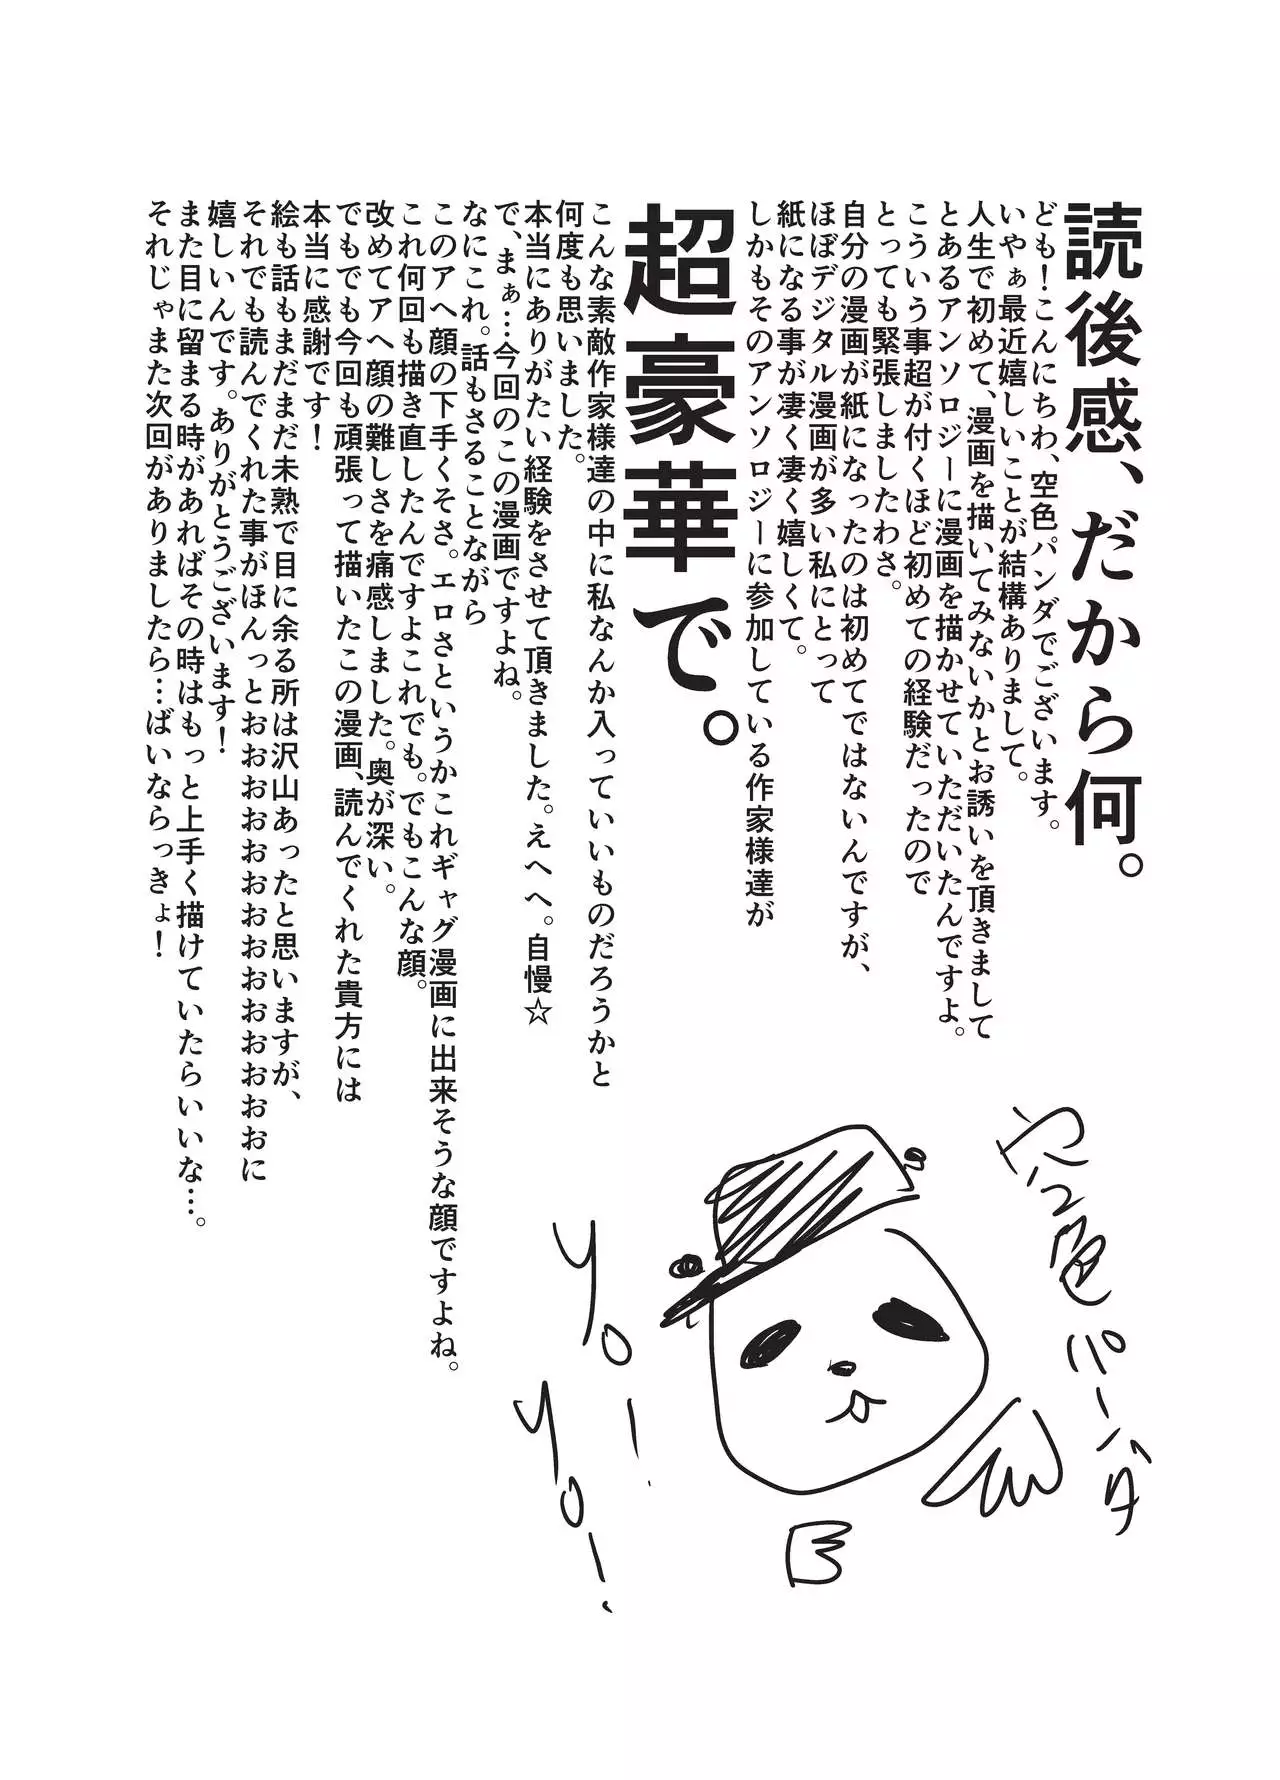 読後感、だから何。
ども！こんにちわ、空色パンダでございます。
いやぁ最近嬉しいことが結構ありまして。
人生で初めて、漫画を描いてみないかとお誘いを頂きまして
とあるアンソロジーに漫画を描かせていただいたんですよ。
こういう事超が付くほど初めての経験だったので
とっても緊張しましたわさ。
自分の漫画が紙になったのは初めてではないんですが、
ほぼデジタル漫画が多い私にとって
紙になる事が凄く凄く嬉しくて。
しかもそのアンソロジーに参加している作家様達が
超豪華で。
こんな素敵作家様達の中に私なんか入っていいものだろうかと
何度も思いました。
本当にありがたい経験をさせて頂きました。えへへ。自慢☆
で、まぁ…今回のこの漫画ですよね。
なにこれ。話もさることながら
このアヘ顔の下手くそさ。エロさというかこれギャグ漫画に出来そうな顔ですよね。
これ何回も描き直したんですよこれでも。でもこんな顔。
改めてアヘ顔の難しさを痛感しました。奥が深い。
でもでも今回も頑張って描いたこの漫画、読んでくれた貴方には
本当に感謝です！
絵も話もまだまだ未熟で目に余る所は沢山あったと思いますが、
それでも読んでくれた事がほんっとおおおおおおおおおおおおおに
嬉しいんです。ありがとうございます！
また目に留まる時があればその時はもっと上手く描けていたらいいな…。
それじゃまた次回がありましたら…ばいならっきょ！
空色パンダ
Yo!
Yo!